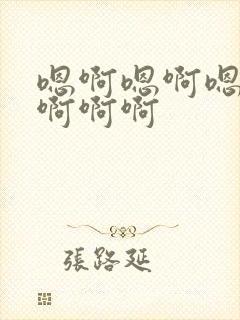 嗯啊嗯啊嗯
啊啊啊
張路延